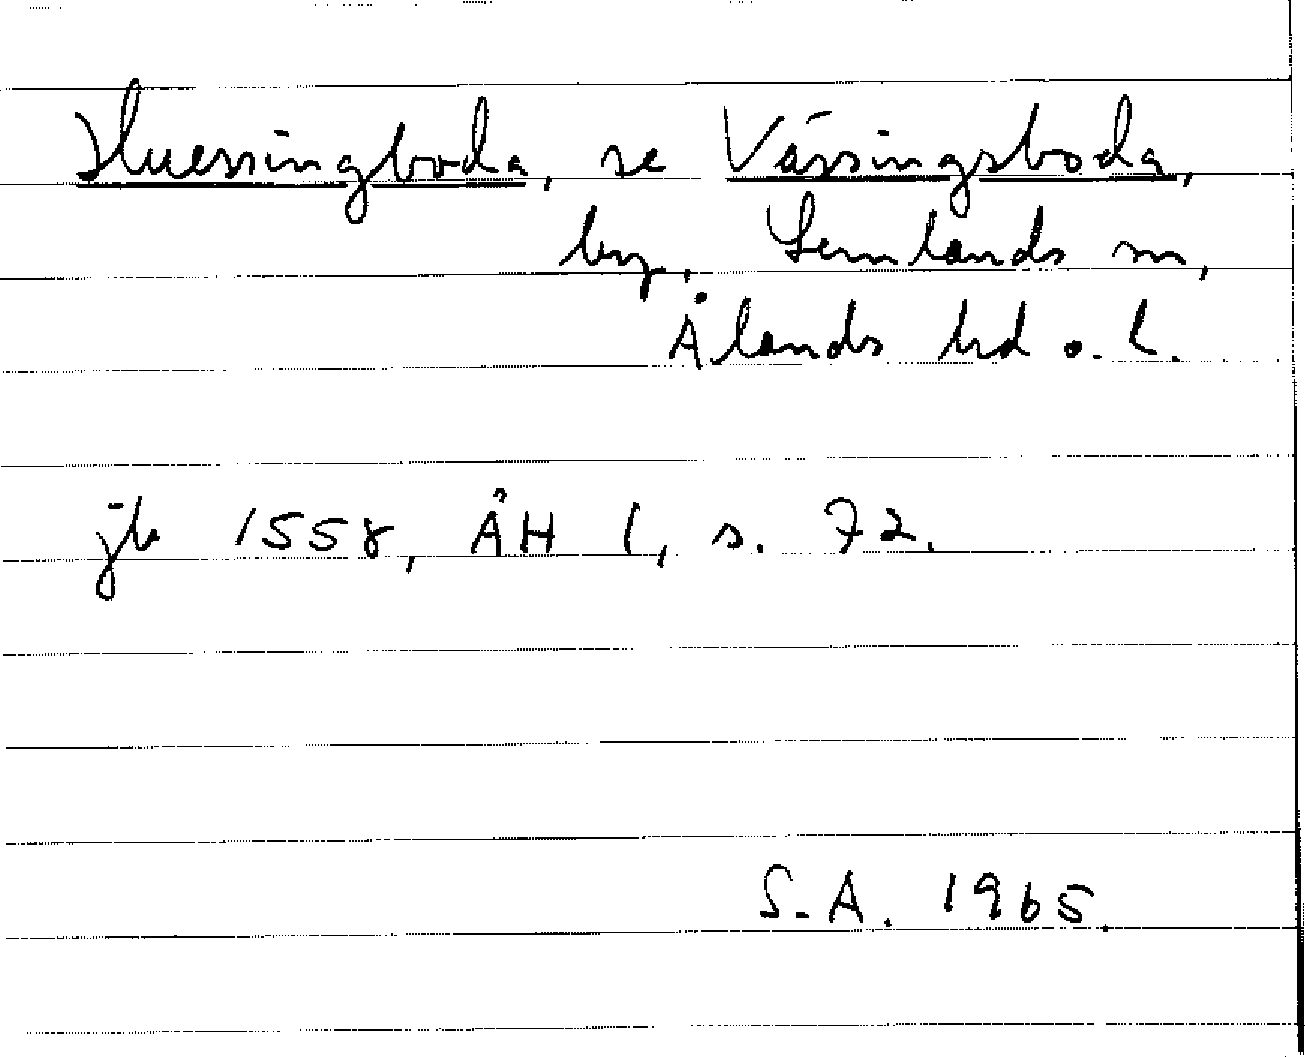 Huessingboda, se Vässingsboda,
by, Lemlands sn,
Ålands hd o. l.
jb 1558, ÅH 1, s. 72.
S.A. 1965.